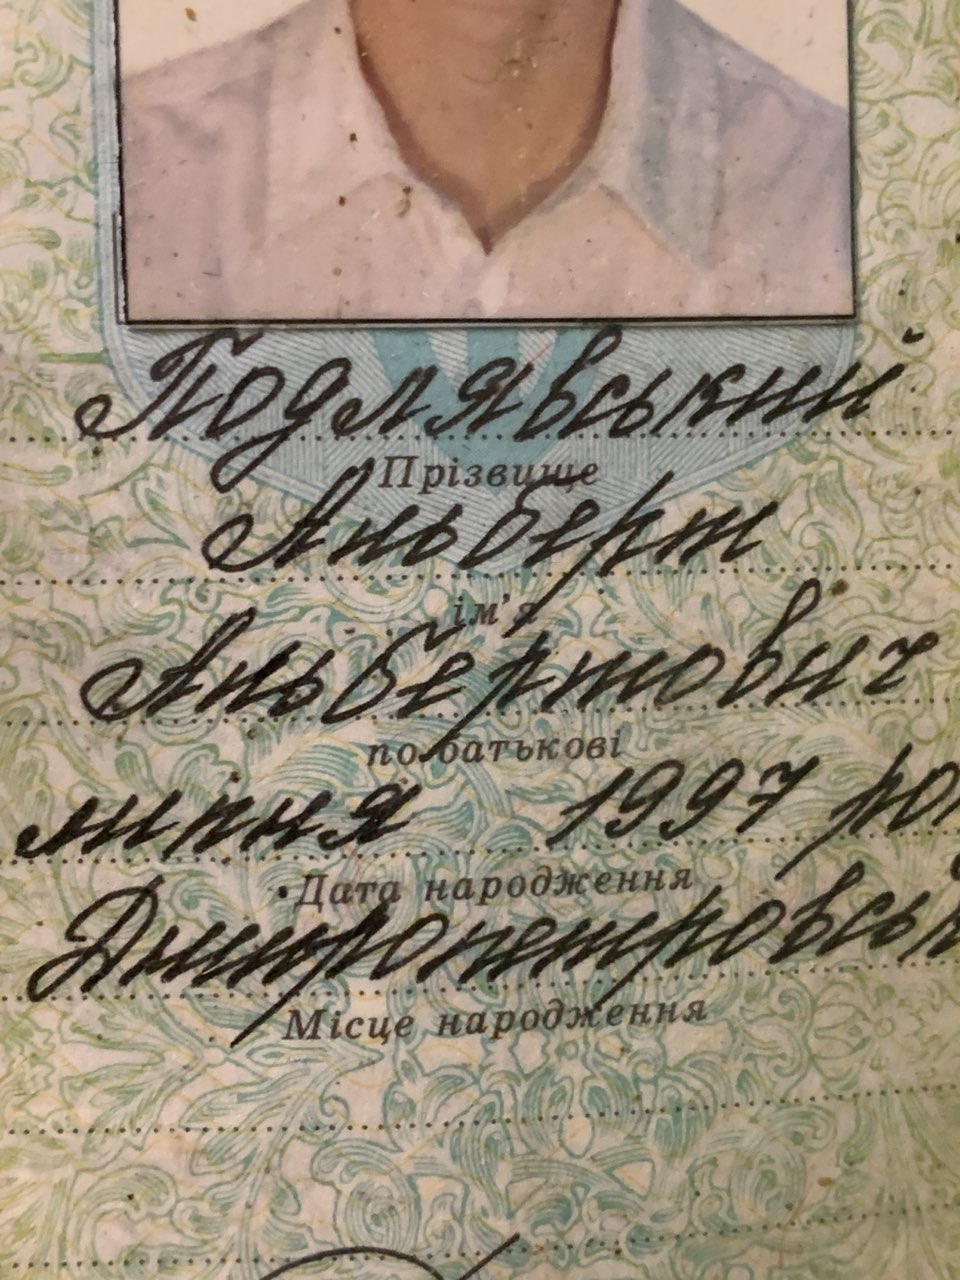 Подлявський
Прізвище
Альберт
ім'я
Альбертович
по батькові
липня 1997 ро
Дата народження
Дніпропетровськ
Місце народження